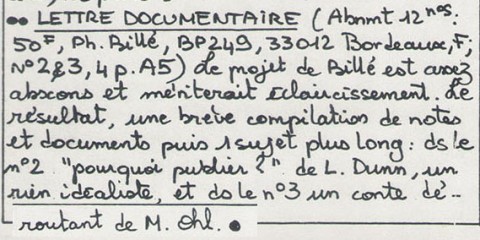 •• LETTRE DOCUMENTAIRE (Abnmt 12 nos:
50F, Ph. Billé, BP249, 33012 Bordeaux, F;
N°2&3, 4 p. A5) Le projet de Billé est assez
abscons et mériterait éclaircissement. Le
résultat, une brève compilation de notes
et documents puis 1 sujet plus long : ds le
n°2 "pourquoi publier ?" de L. Dunn, un
rien idéaliste, et ds le n°3 un conte dé-
routant de M. Ohl. •